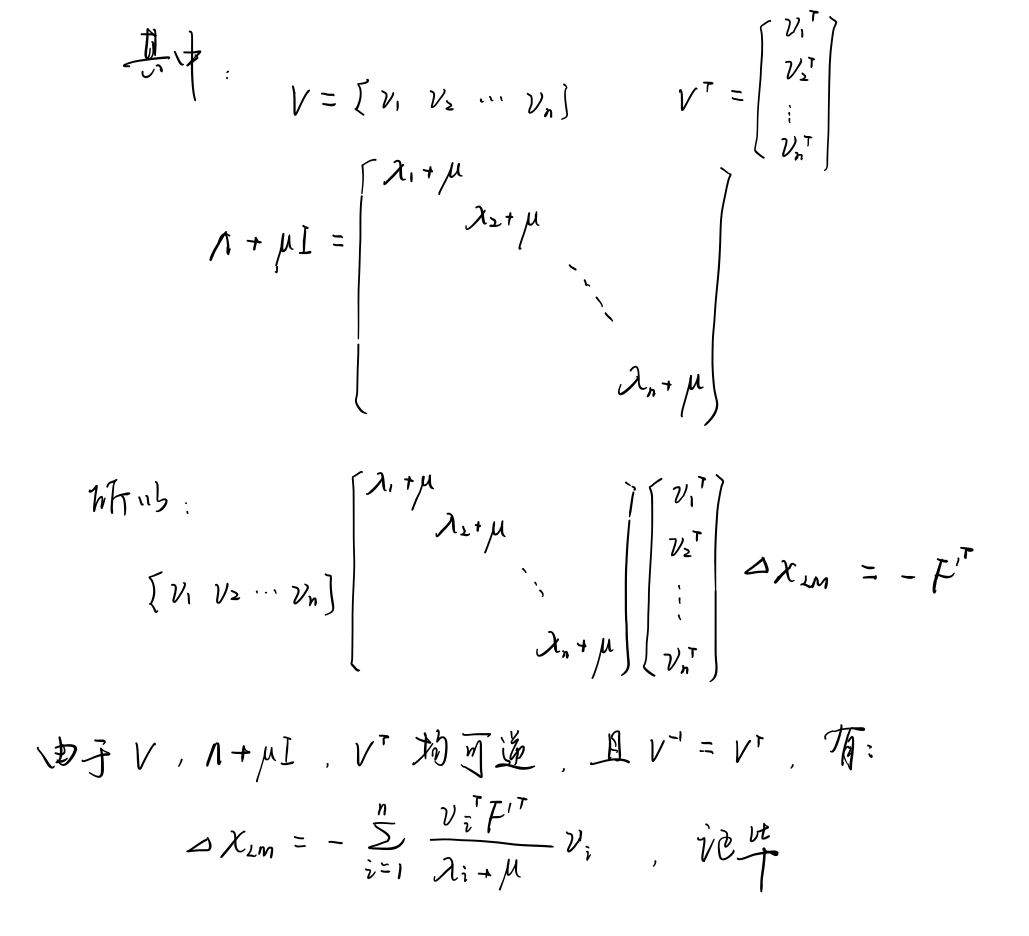 其中:
V = [ v₁ v₂ ⋯ vₙ ] Vᵀ = [ v₁ᵀ v₂ᵀ ⋮ vₙᵀ ]
Λ + μI = [ λ₁+μ λ₂+μ ⋱ λₙ+μ ]
所以:
[ v₁ v₂ ⋯ vₙ ] [ λ₁+μ λ₂+μ ⋱ λₙ+μ ] [ v₁ᵀ v₂ᵀ ⋮ vₙᵀ ] Δx_LM = - F'ᵀ
由于 V , Λ+μI , Vᵀ 均可逆 , 且 V⁻¹ = Vᵀ , 有:
Δx_LM = - ∑_{i=1}^{n} \frac{v_iᵀ F'ᵀ}{λ_i + μ} v_i , 记毕